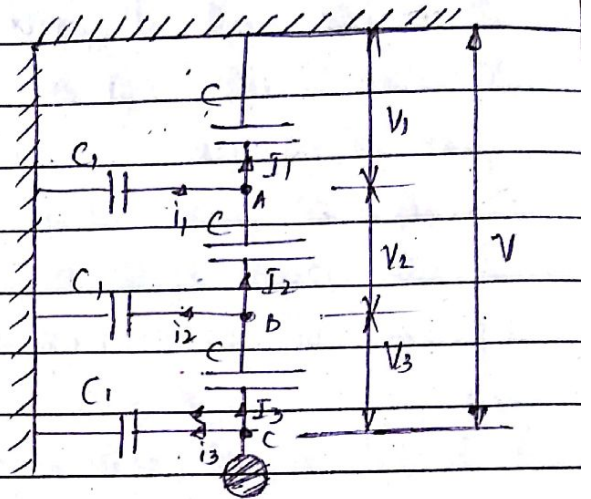 C
V1
C1
I1
A
i1
C
V2
V
C1
I2
B
i2
C
V3
C1
I3
C
i3